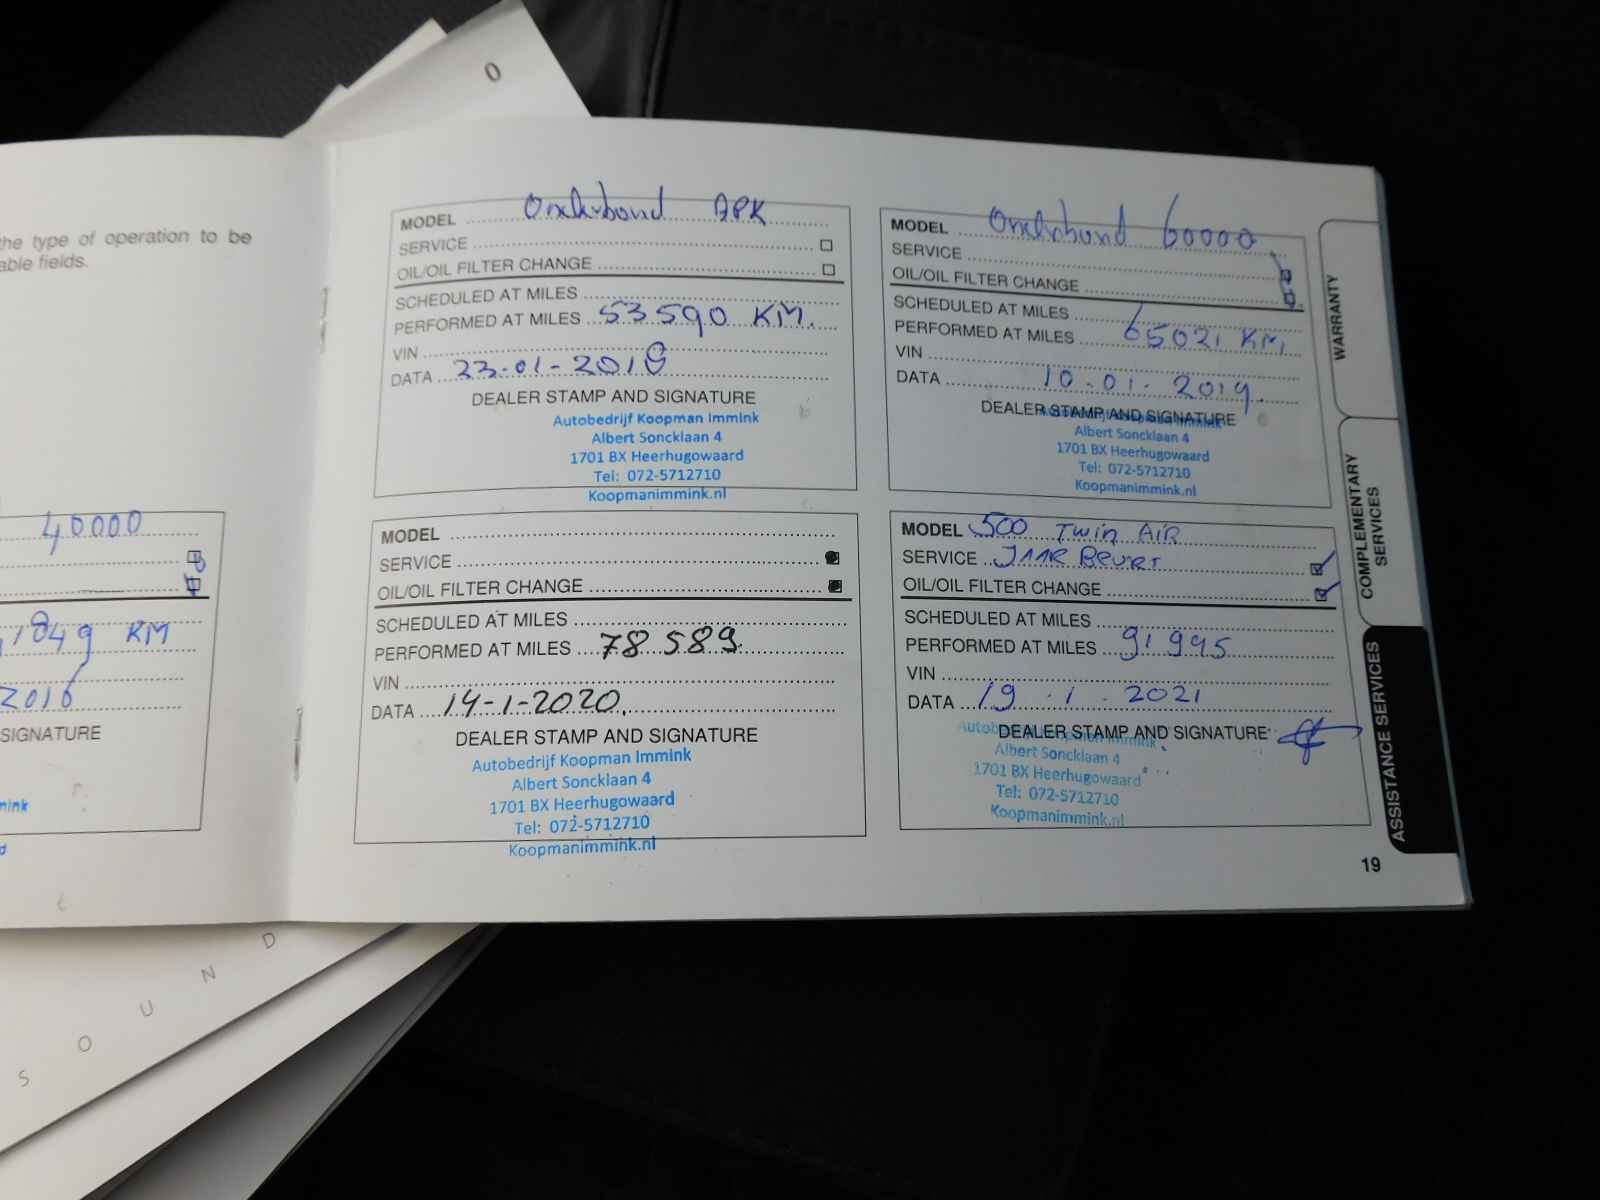 0
the type of operation to be
able fields.
40000
1849 KM
2016
SIGNATURE
mink
d
MODEL Onderhoud APK
SERVICE
OIL/OIL FILTER CHANGE
SCHEDULED AT MILES
PERFORMED AT MILES 53590 KM.
VIN
DATA 23-01-2018
DEALER STAMP AND SIGNATURE
Autobedrijf Koopman Immink
Albert Soncklaan 4
1701 BX Heerhugowaard
Tel: 072-5712710
Koopmanimmink.nl
MODEL Onderhoud 60000
SERVICE
OIL/OIL FILTER CHANGE
SCHEDULED AT MILES
PERFORMED AT MILES 65021 KM
VIN
DATA 10-01-2019.
DEALER STAMP AND SIGNATURE
Autobedrijf Koopman Immink
Albert Soncklaan 4
1701 BX Heerhugowaard
Tel: 072-5712710
Koopmanimmink.nl
MODEL
SERVICE
OIL/OIL FILTER CHANGE
SCHEDULED AT MILES
PERFORMED AT MILES 78589
VIN
DATA 14-1-2020.
DEALER STAMP AND SIGNATURE
Autobedrijf Koopman Immink
Albert Soncklaan 4
1701 BX Heerhugowaard
Tel: 072-5712710
Koopmanimmink.nl
MODEL 500 Twin AiR
SERVICE JAAR Beurt
OIL/OIL FILTER CHANGE
SCHEDULED AT MILES
PERFORMED AT MILES 91995
VIN
DATA 19-1-2021
DEALER STAMP AND SIGNATURE
Autobedrijf Koopman Immink
Albert Soncklaan 4
1701 BX Heerhugowaard
Tel: 072-5712710
Koopmanimmink.nl
WARRANTY
COMPLEMENTARY
SERVICES
ASSISTANCE SERVICES
19
SOUND